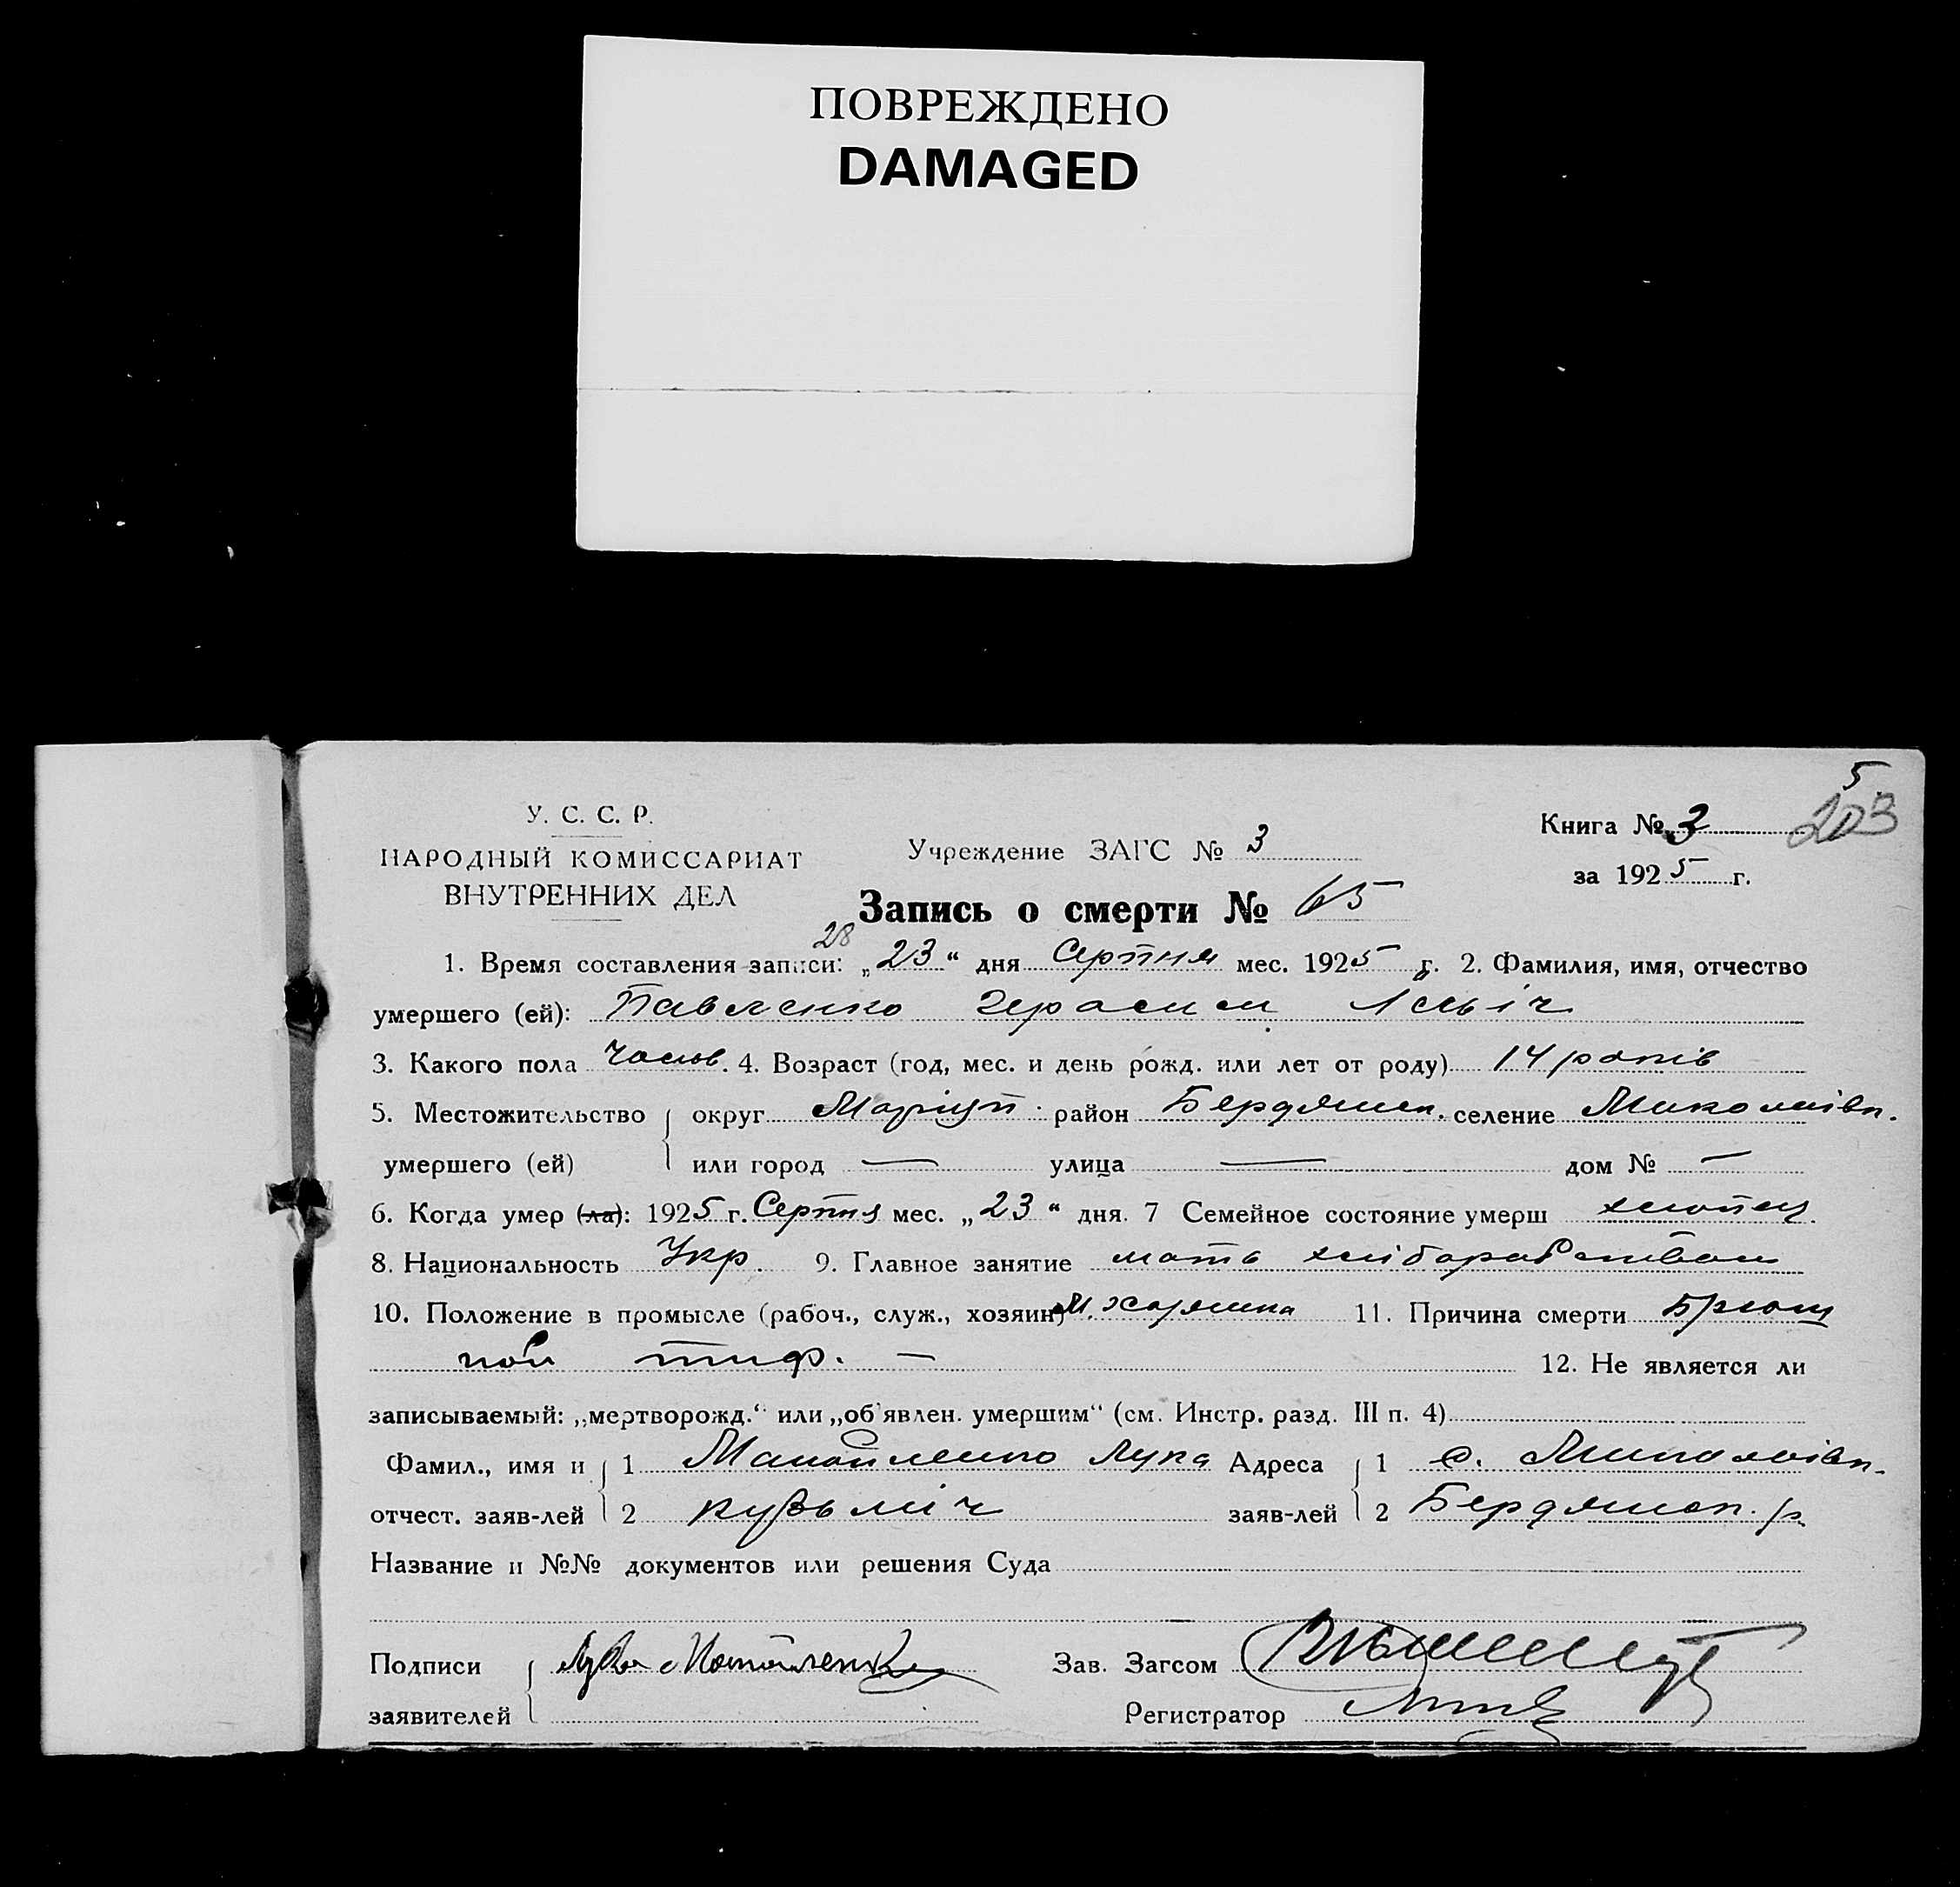 ПОВРЕЖДЕНО
DAMAGED
5
У. С. С. Р.
НАРОДНЫЙ КОМИССАРИАТ
ВНУТРЕННИХ ДЕЛ
Учреждение ЗАГС № 3
Книга № 3 203
за 1925 г.
Запись о смерти № 65
28
1. Время составления записи: „23“ дня Серпня мес. 1925 г. 2. Фамилия, имя, отчество
умершего (ей): Павленко Герасим Ілліч
3. Какого пола чолов. 4. Возраст (год, мес. и день рожд. или лет от роду) 14 років
5. Местожительство округ Маріуп. район Бердянськ. селение Миколаївк.
умершего (ей) или город — улица — дом № —
6. Когда умер (ла): 1925 г. Серпня мес. „23“ дня. 7 Семейное состояние умерш хлопец.
8. Национальность Укр. 9. Главное занятие мать хліборобством
10. Положение в промысле (рабоч., служ., хозяин) 11. Причина смерти Брюш
ной тиф. —
12. Не является ли
записываемый: „мертворожд.“ или „об'явлен. умершим“ (см. Инстр. разд. III п. 4)
Фамил., имя и 1 Манойленко Лука Адреса 1 с. Миколаївк.
отчест. заяв-лей 2 Кузьміч заяв-лей 2 Бердянськ. р.
Название и №№ документов или решения Суда
Подписи Лука Манойленко Зав. Загсом
заявителей Регистратор